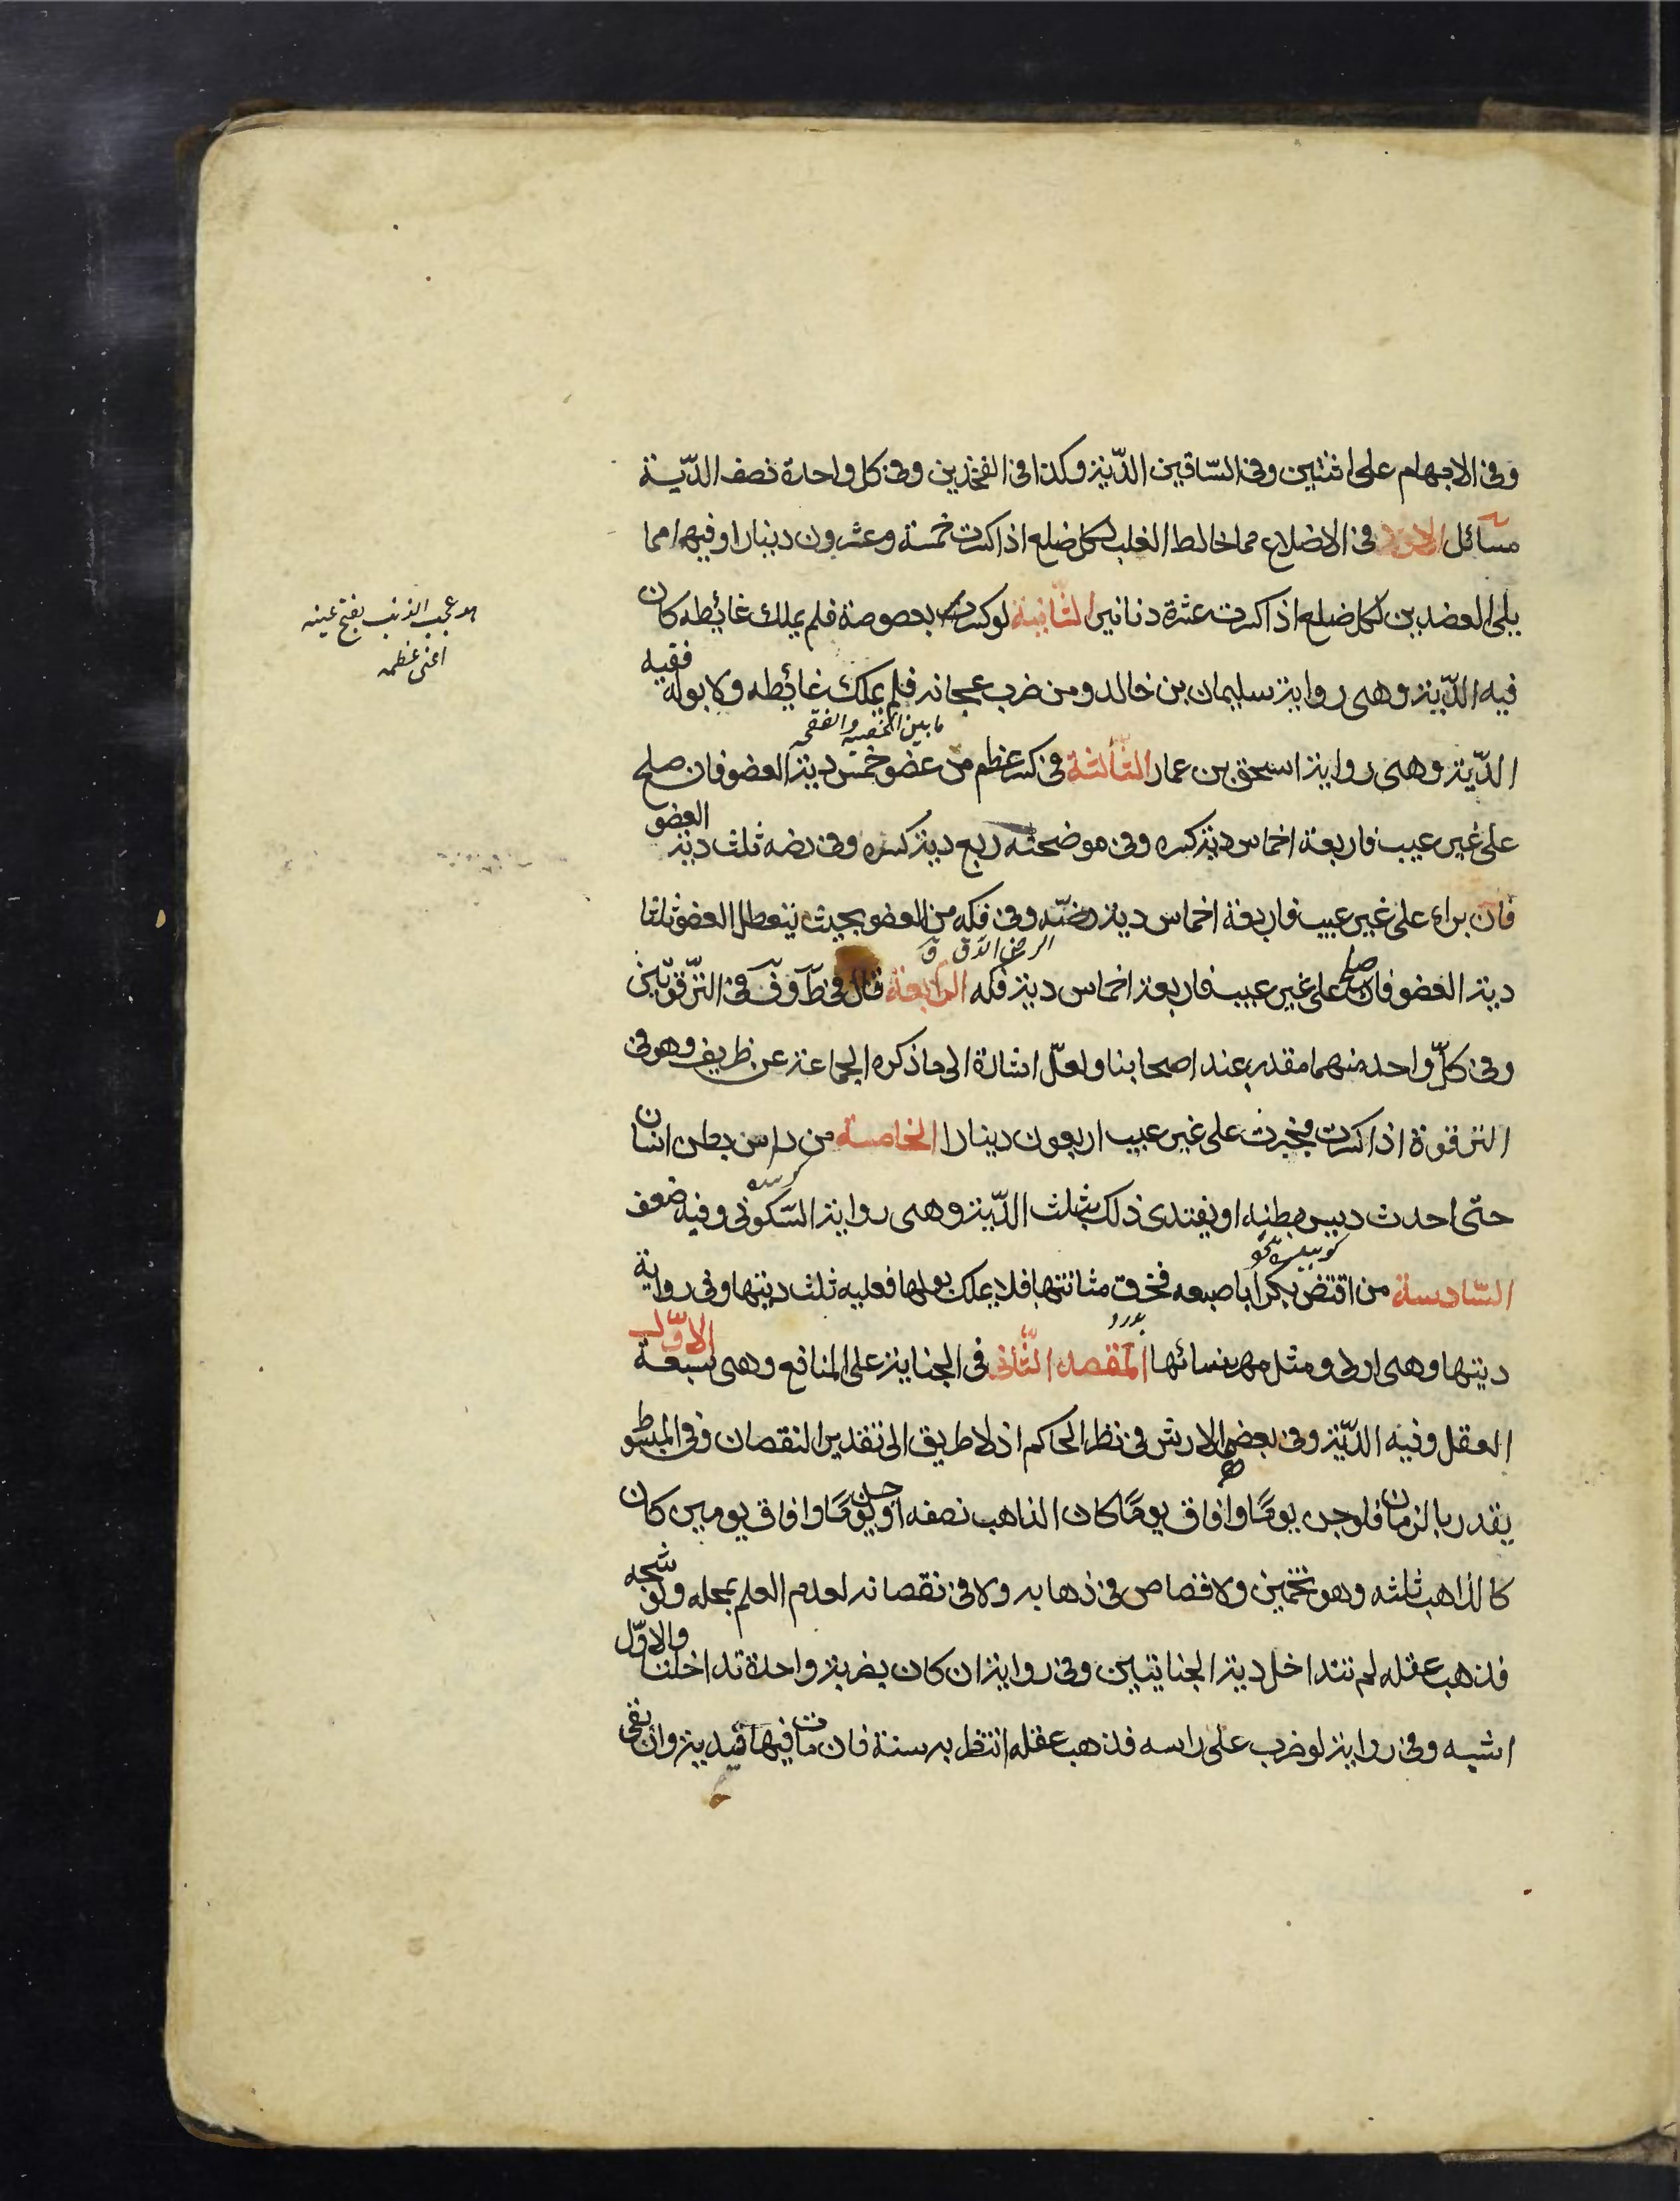 وفى الابهام على اثنتين وفى الساقين الدّية وكذا فى الفخذين وفى كل واحدة نصف الدّية
مسائل الاولى فى الاضلاع مما خالط القلب لكل ضلع اذا كسرت خمسة وعشرون دينارا وفيها مما
يلى العضدين لكل ضلع اذا كسرت عشرة دنانير الثّانية لو كسرت بعصوصة فلم يملك غائطه كان
هو عجب الذنب بفتح عينه
اعنى عظمه
فيه الدّية وهى رواية سليمان بن خالد ومن ضرب عجانه فلم يملك غائطه ولا بوله ففيه
ما بين الخصية والفقحة
الدّية وهى رواية اسحق بن عمار الثّالثة فى كسر عظم من عضو خمس دية العضو فان صلح
على غير عيب فاربعة اخماس دية كسره وفى موضحته ربع دية كسره وفى رضه ثلث دية العضو
فان براء على غير عيب فاربعة اخماس دية رضّه وفى فكه من العضو بحيث يتعطل العضو ثلثا
الرض الدق ق
دية العضو فان صلح على غير عيب فاربعة اخماس دية فكه الرّابعة قال فى ط وف فى التّرقوتين
وفى كلّ واحد منهما مقدر عند اصحابنا ولعلّ اشارة الى ما ذكره الجماعة عن ظريف وهو فى
الترقوة اذا كسرت فجبرت على غير عيب اربعون دينارا الخامسة من داس بطن انسان
حتى احدث ديس بطنه او يفتدى ذلك بثلث الدّية وهى رواية السّكونى وفيه ضعف
السّادسة من اقتض بكرا باصبعه فخرق مثانتها فلا يملك بولها فعليه ثلث ديتها وفى رواية
ديتها وهى اولى ومثل مهر نسائها المقصد الثّانى فى الجناية على المنافع وهى سبعة الاوّل
العقل وفيه الدّية وفى بعضه الارش فى نظر الحاكم اذ لا طريق الى تقدير النقصان وفى المبسوط
يقدر بالزمان فلو جن يومًا وافاق يومًا كان الذاهب نصفه او جن يومًا وافاق يومين كان
كالذاهب ثلثه وهو تخمين ولا قصاص فى ذهابه ولا فى نقصانه لعدم العلم بمحله ولو شجه
فذهب عقله لم تتداخل دية الجنايتين وفى رواية ان كان بضربة واحدة تداخلتا والاوّل
اشبه وفى رواية لو ضرب على راسه فذهب عقله انتظر به سنة فان مات فيها قيد به وان بقى